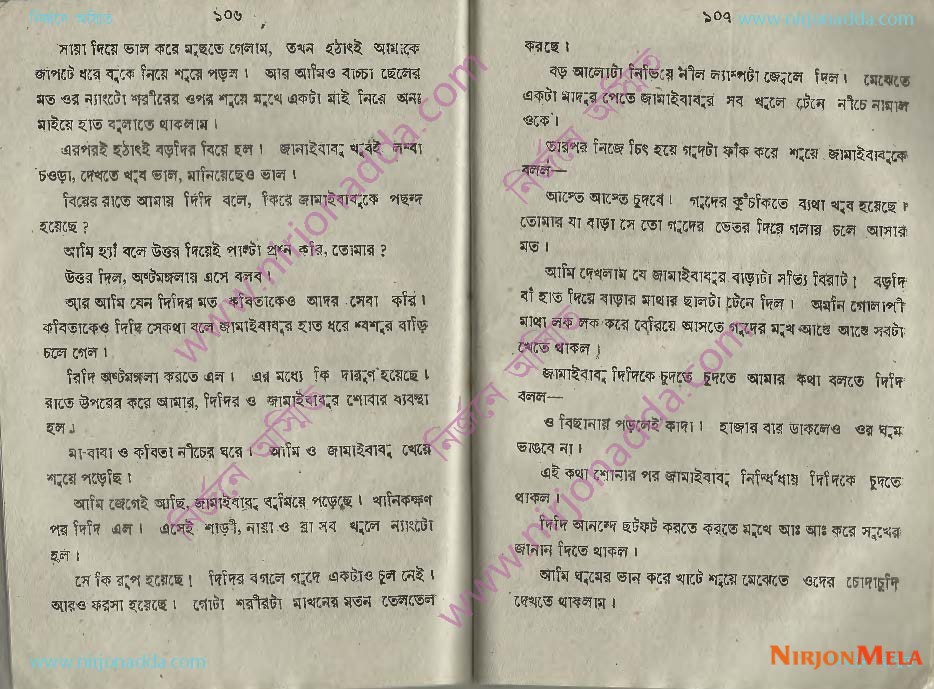 নির্জনে অস্মিত
১০৬
সায়া দিয়ে ভাল করে মুছতে গেলাম, তখন হঠাৎই আমাকে
জাপটে ধরে বুকে নিয়ে শুয়ে পড়ল। আর আমিও বাচ্চা ছেলের
মত ওর ন্যাংটো শরীরের ওপর শুয়ে মুখে একটা মাই নিয়ে অন্য
মাইয়ে হাত বুলাতে থাকলাম।
এরপরই হঠাৎই বড়দির বিয়ে হল। জামাইবাবু খুবই লম্বা
চওড়া, দেখতে খুব ভাল, মানিয়েছেও ভাল।
বিয়ের রাতে আমায় দিদি বলে, কিরে জামাইবাবুকে পছন্দ
হয়েছে?
আমি হ্যাঁ বলে উত্তর দিয়েই পাল্টা প্রশ্ন করি, তোমার?
উত্তর দিল, অষ্টমঙ্গলায় এসে বলব।
আর আমি যেন দিদির মত কবিতাকেও আদর সেবা করি।
কবিতাকেও দিদি সেকথা বলে জামাইবাবুর হাত ধরে শ্বশুর বাড়ি
চলে গেল।
দিদি অষ্টমঙ্গলা করতে এল। এর মধ্যে কি দারুণ হয়েছে।
রাতে উপরের করে আমার, দিদির ও জামাইবাবুর শোবার ব্যবস্থা
হল।
মা-বাবা ও কবিতা নীচের ঘরে। আমি ও জামাইবাবু খেয়ে
শুয়ে পড়েছি।
আমি জেগেই আছি, জামাইবাবু ঘুমিয়ে পড়েছে। খানিকক্ষণ
পর দিদি এল। এসেই শাড়ী, সায়া ও ব্রা সব খুলে ন্যাংটো
হল।
সে কি রূপ হয়েছে! দিদির বগলে গুদে একটাও চুল নেই।
আরও ফরসা হয়েছে। গোটা শরীরটা মাখনের মতন তেলতেল
www.nirjonadda.com
১০৭
www.nirjonadda.com
করছে।
বড় আলোটা নিভিয়ে নীল ল্যাম্পটা জ্বেলে দিল। মেঝেতে
একটা মাদুর পেতে জামাইবাবুর সব খুলে টেনে নীচে নামাল
ওকে।
তারপর নিজে চিৎ হয়ে গুদটা ফাঁক করে শুয়ে জামাইবাবুকে
বলল—
আস্তে আস্তে চুদবে। গুদের কুঁচকিতে ব্যথা খুব হয়েছে।
তোমার যা বাড়া সে তো গুদের ভেতর দিয়ে গলার চলে আসার
মত।
আমি দেখলাম যে জামাইবাবুর বাড়াটা সত্যি বিরাট। বড়দি
বাঁ হাত দিয়ে বাড়ার মাথার ছালটা টেনে দিল। অমনি গোলাপী
মাথা লক লক করে বেরিয়ে আসতে গুদের মুখ আস্তে আস্তে সবটা
খেতে থাকল।
জামাইবাবু দিদিকে চুদতে চুদতে আমার কথা বলতে দিদি
বলল—
ও বিছানায় পড়লেই কাদা। হাজার বার ডাকলেও ওর ঘুম
ভাঙবে না।
এই কথা শোনার পর জামাইবাবু নির্দ্বিধায় দিদিকে চুদতে
থাকল।
দিদি আনন্দে ছটফট করতে করতে মুখে আঃ আঃ করে সুখের
জানান দিতে থাকল।
আমি ঘুমের ভান করে খাটে শুয়ে মেঝেতে ওদের চোদাচুদি
দেখতে থাকলাম।
NIRJONMELA
www.nirjonadda.com
নির্জনে অস্মিত
নির্জনে অস্মিত
www.nirjonadda.com
নির্জনে অস্মিত